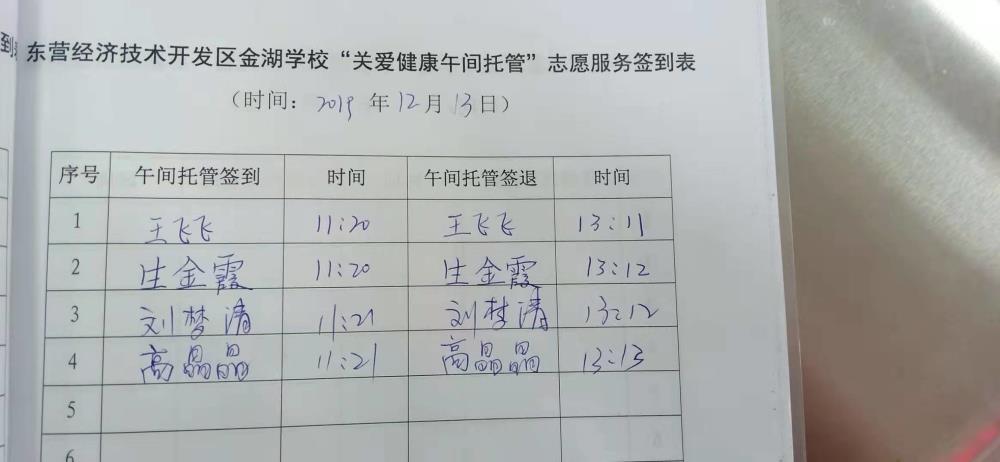 到
东营经济技术开发区金湖学校“关爱健康午间托管”志愿服务签到表
（时间：2019 年 12 月 13 日）
序号 午间托管签到 时间 午间托管签退 时间
1 王飞飞 11:20 王飞飞 13:11
2 生金霞 11:20 生金霞 13:12
3 刘梦清 11:21 刘梦清 13:12
4 高晶晶 11:21 高晶晶 13:13
5
6